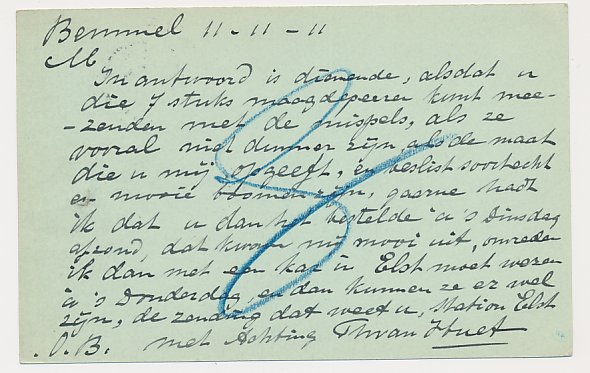 Bemmel 11-11-11
M
In antwoord is dienende, alsdat u
die 7 stuks maagdepeeren kunt mee-
-zenden met de mispels, als ze
vooral niet dunner zijn, als de maat
die u mij opgeeft, en beslist soortecht
en mooie boomen zijn, gaarne hadt
ik dat u dan het bestelde a's Dinsdag
afzond, dat kwam mij mooi uit, omreden
ik dan met een kar in Elst moet wezen
a's Donderdag, en dan kunnen ze er wel
zijn, de zending dat weet u, Station Elst
O.B. met Achting